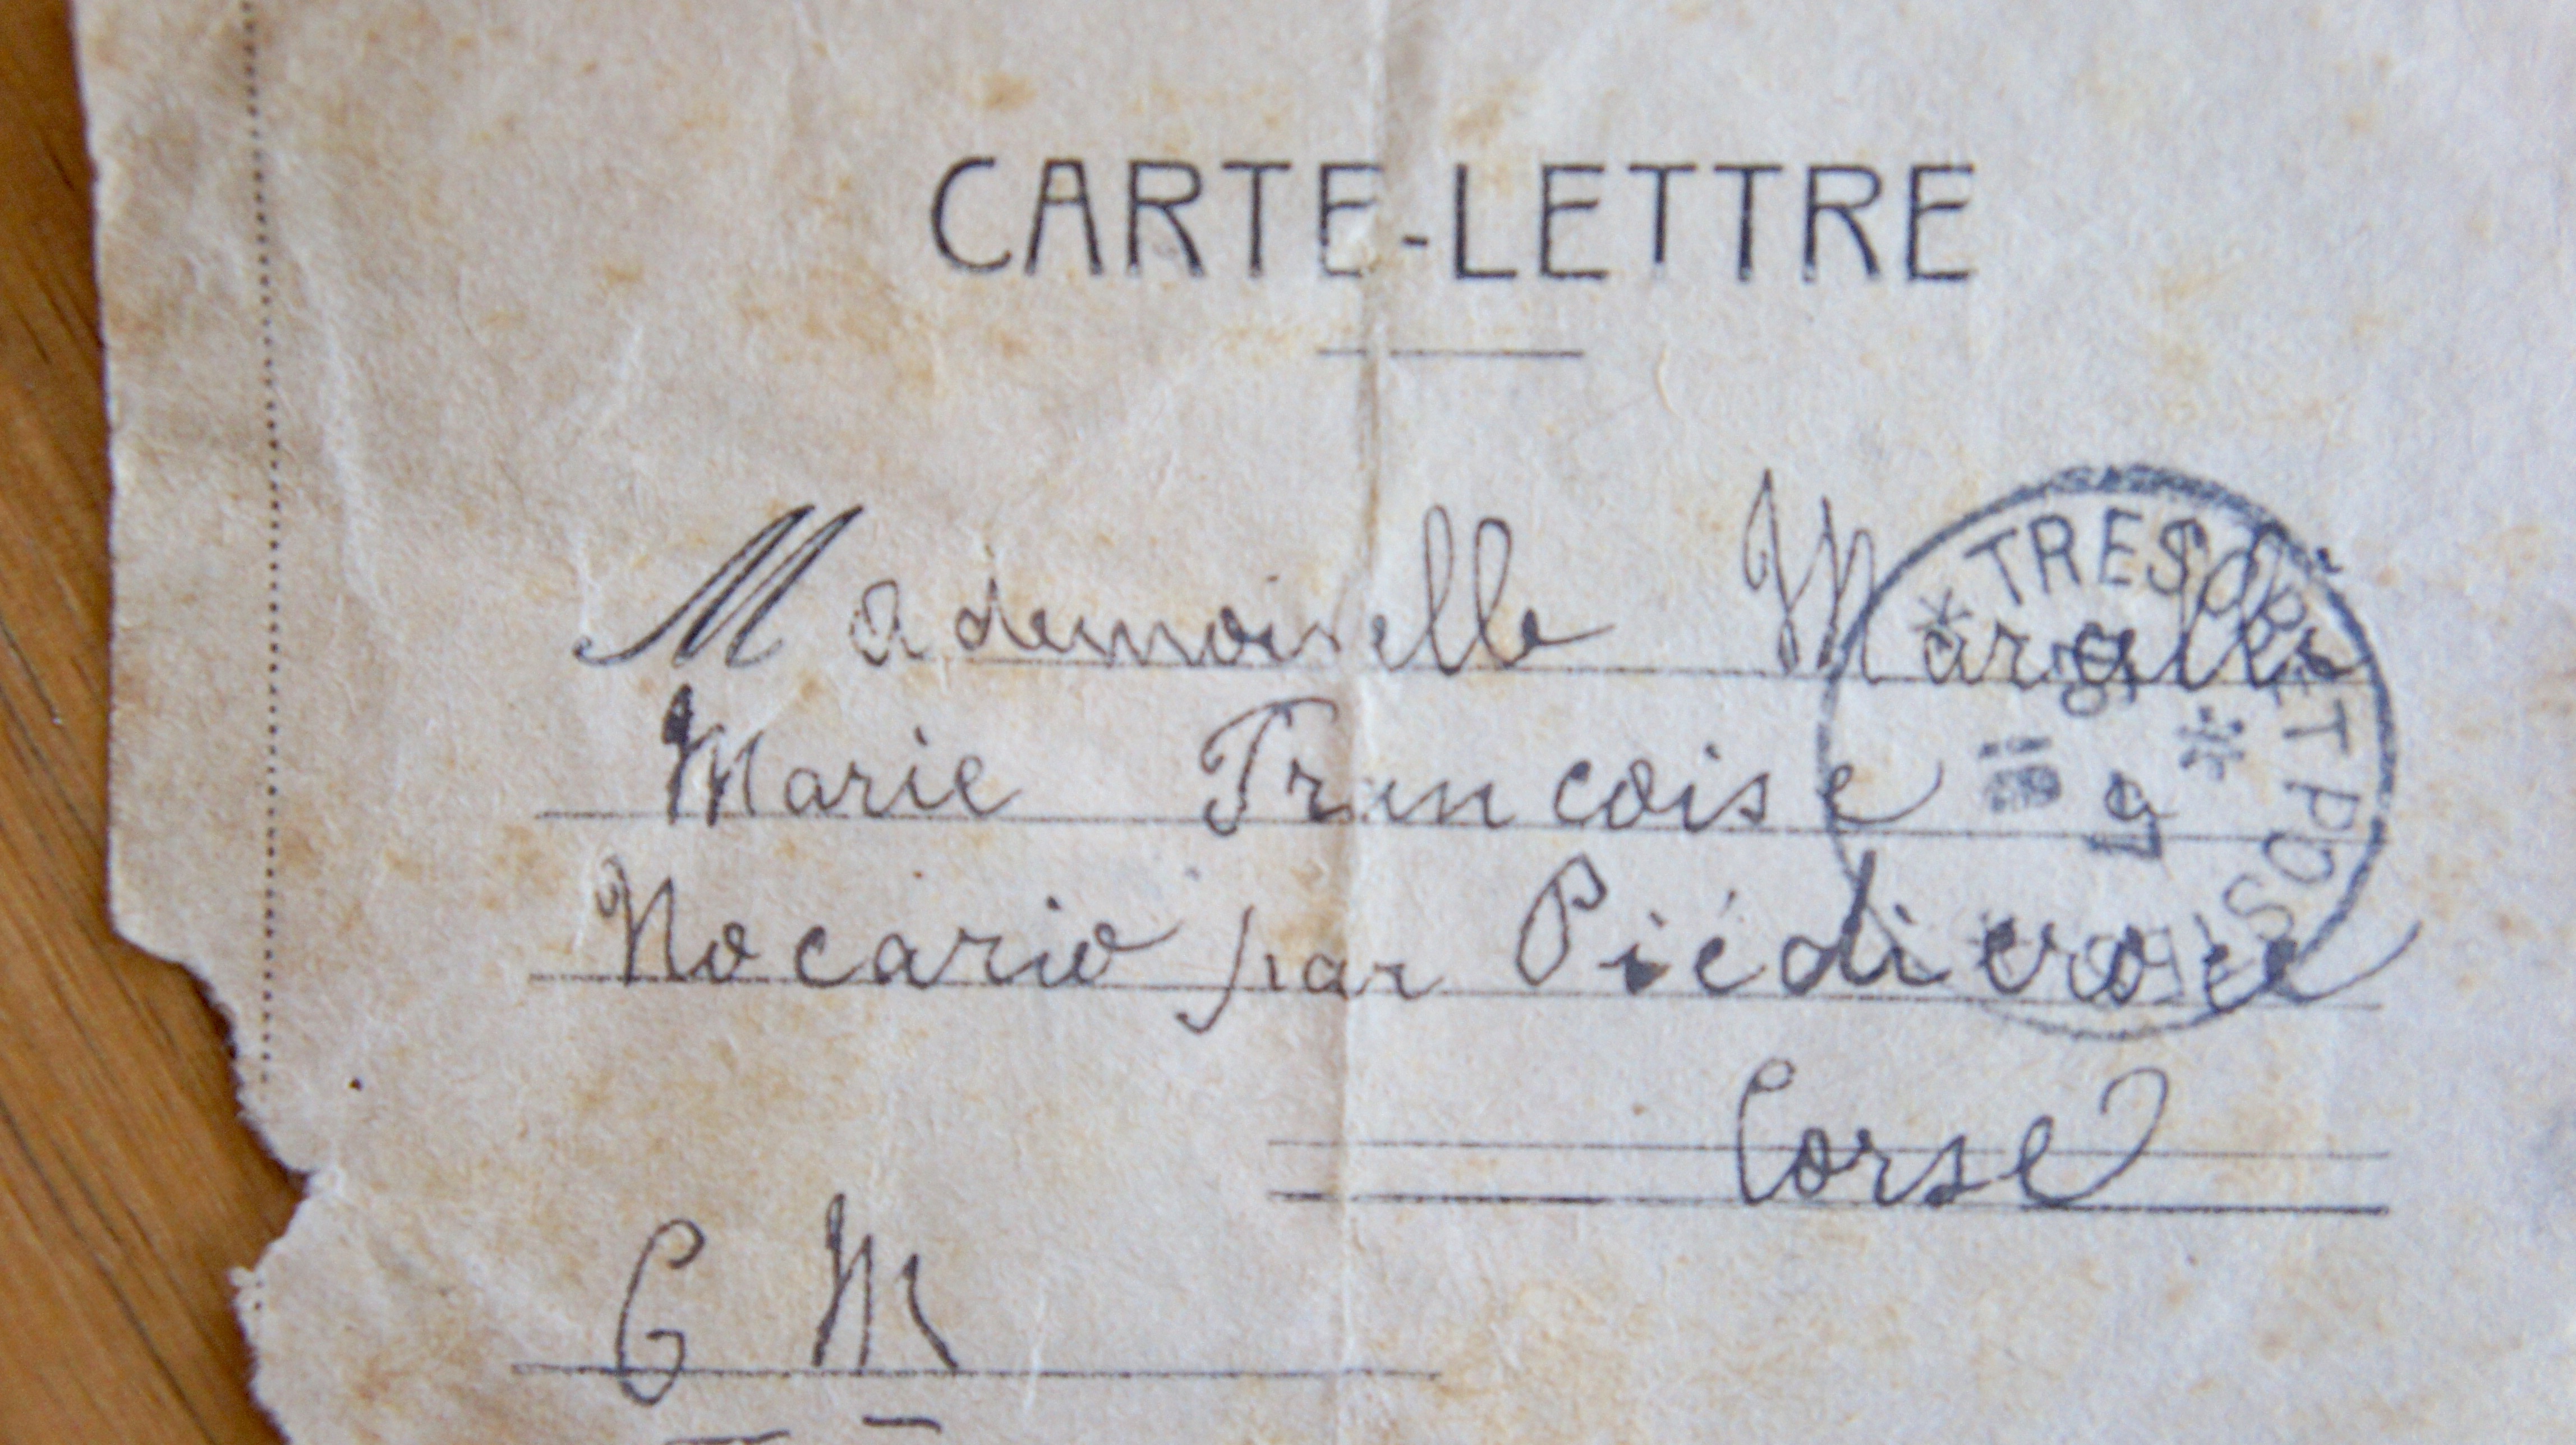 CARTE-LETTRE
Mademoiselle
Marie Francoise
Nocario par Piédicroce
Corse
G M
* TRESOR ET POSTES *